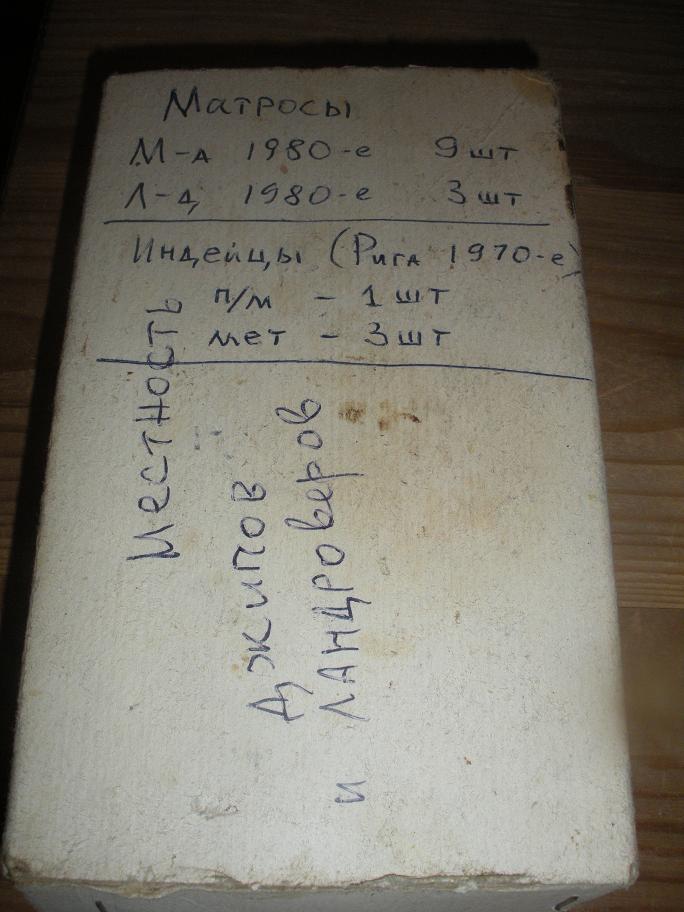 Матросы
М-д 1980-е 9 шт
Л-д 1980-е 3 шт
Индейцы (Рига 1970-е)
п/м - 1 шт
мет - 3 шт
Местность
джипов
и ландроверов